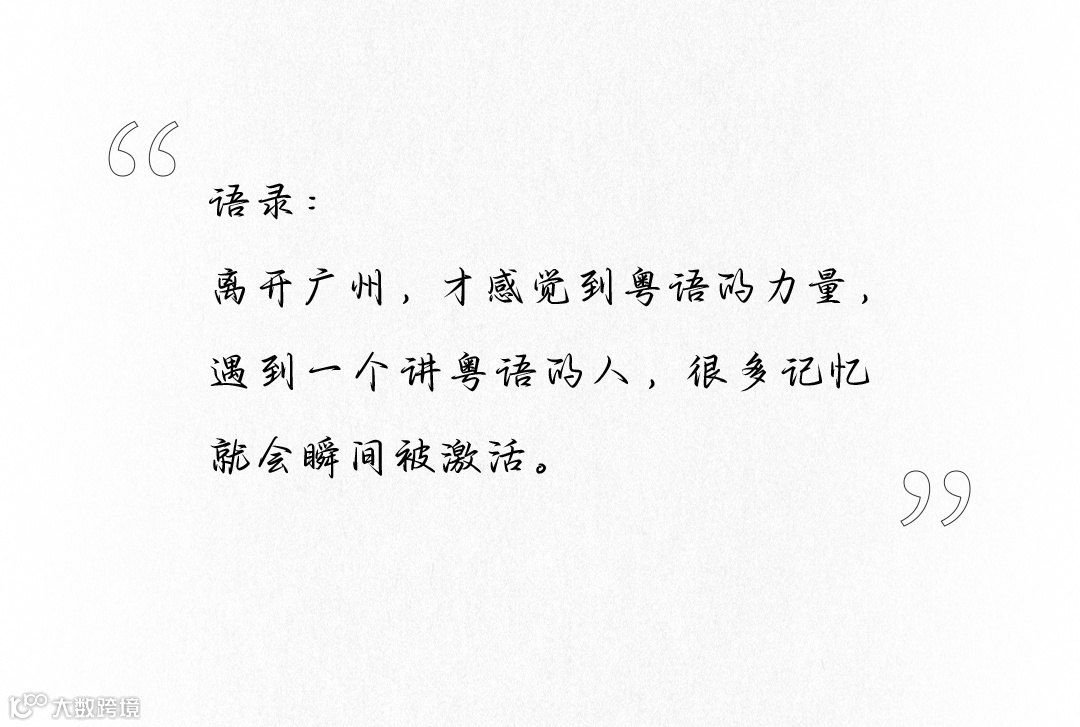 语录：
离开广州，才感觉到粤语的力量，
遇到一个讲粤语的人，很多记忆
就会瞬间被激活。
大数跨境